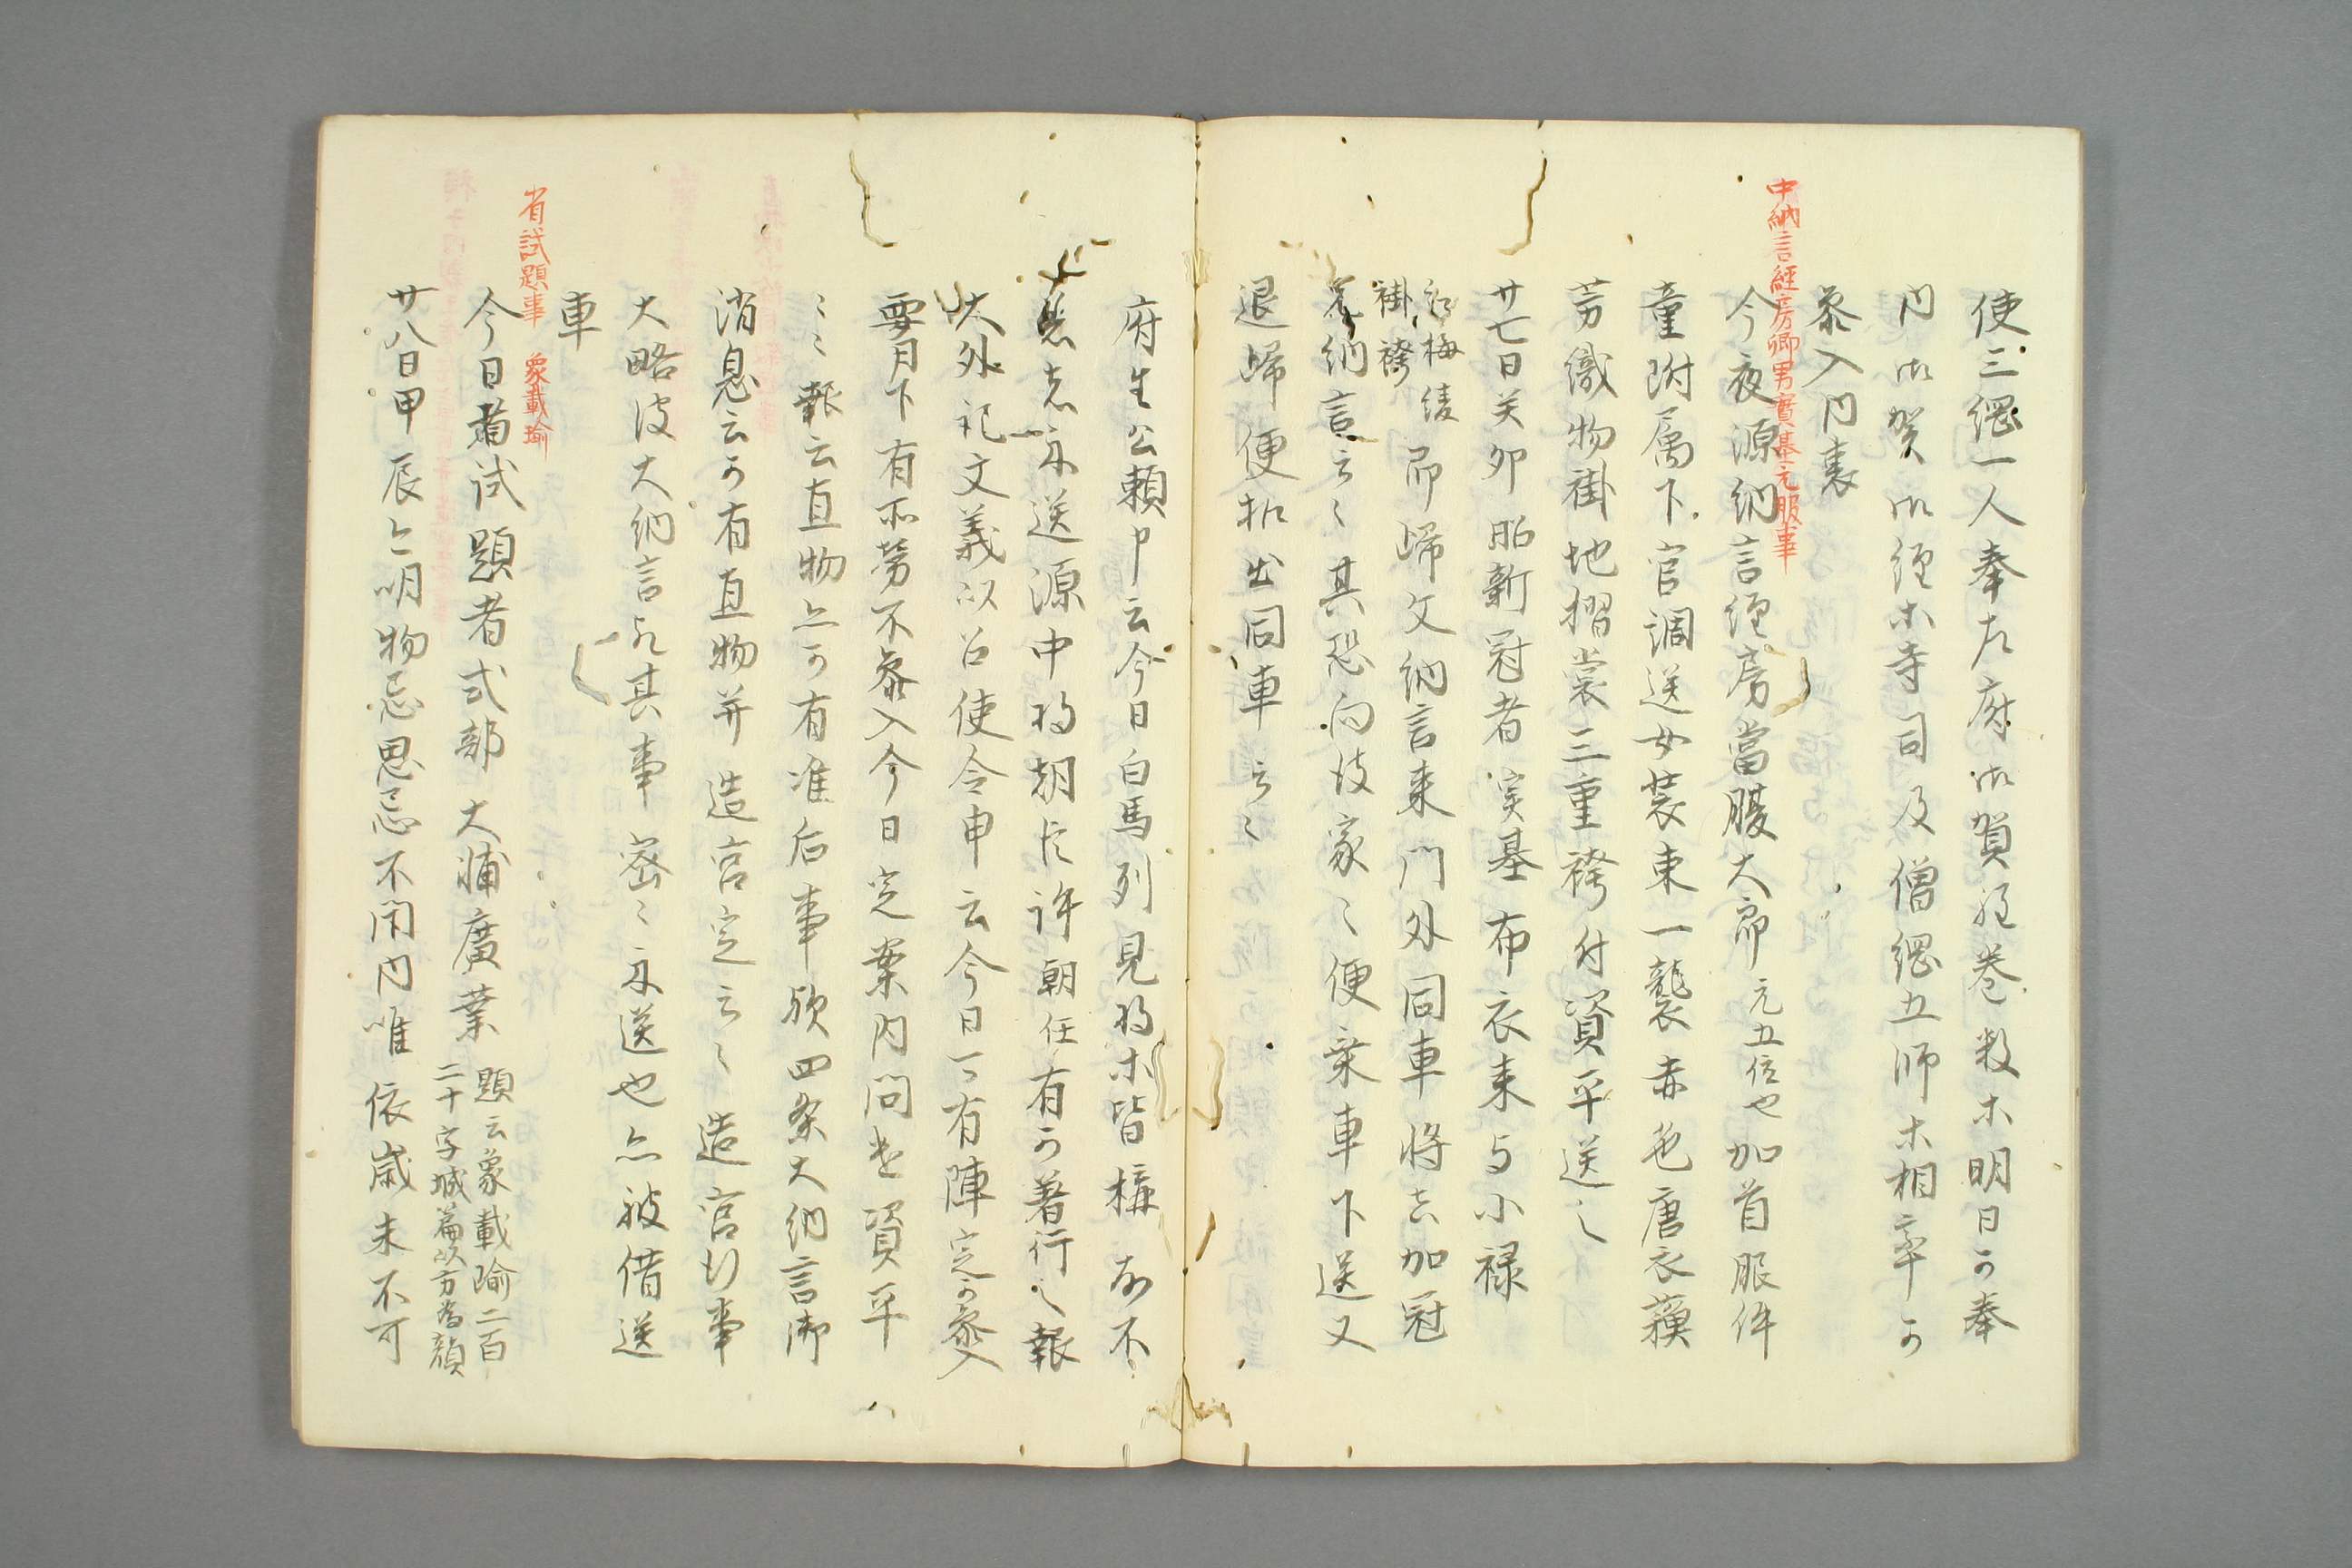 使三綱一人奉左府御賀経巻数ホ明日可奉
内御賀御経ホ寺司及僧綱五師ホ相率可
参入内裏
中納言經房卿男實基元服事
今夜源納言経房當腹大郎元五位也加首服件
童附属下官調送女装束一襲赤色唐衣蘓
芳織物褂地摺裳三重袴付資平送之
廿七日癸卯昭新冠者実基布衣来与小禄
紅梅綾
褂袴
即帰父納言来門外同車将去加冠
納言云〻其恐向彼家〻便乗車下送又
退帰便拒出同車云〻
府生公頼申云今日白馬列見將ホ皆搆故不
志示送源中将朝臣許朝任有可著行之報
大外記文義以召使令申云今日可有陣定可参入
要月下有所労不参入今日定案内問遣資平
〻〻報云直物亦可有准后事欤四条大納言御
消息云可有直物并造宮定云〻造宮行事
大略彼大納言承其事密〻示送也亦被借送
車
省試題事 象載瑜
今日省試題者式部大輔廣業
題云象載瑜二百
二十字城篇以方為韻
廿八日甲辰亦明物忌思忌不閇門唯依歳末不可